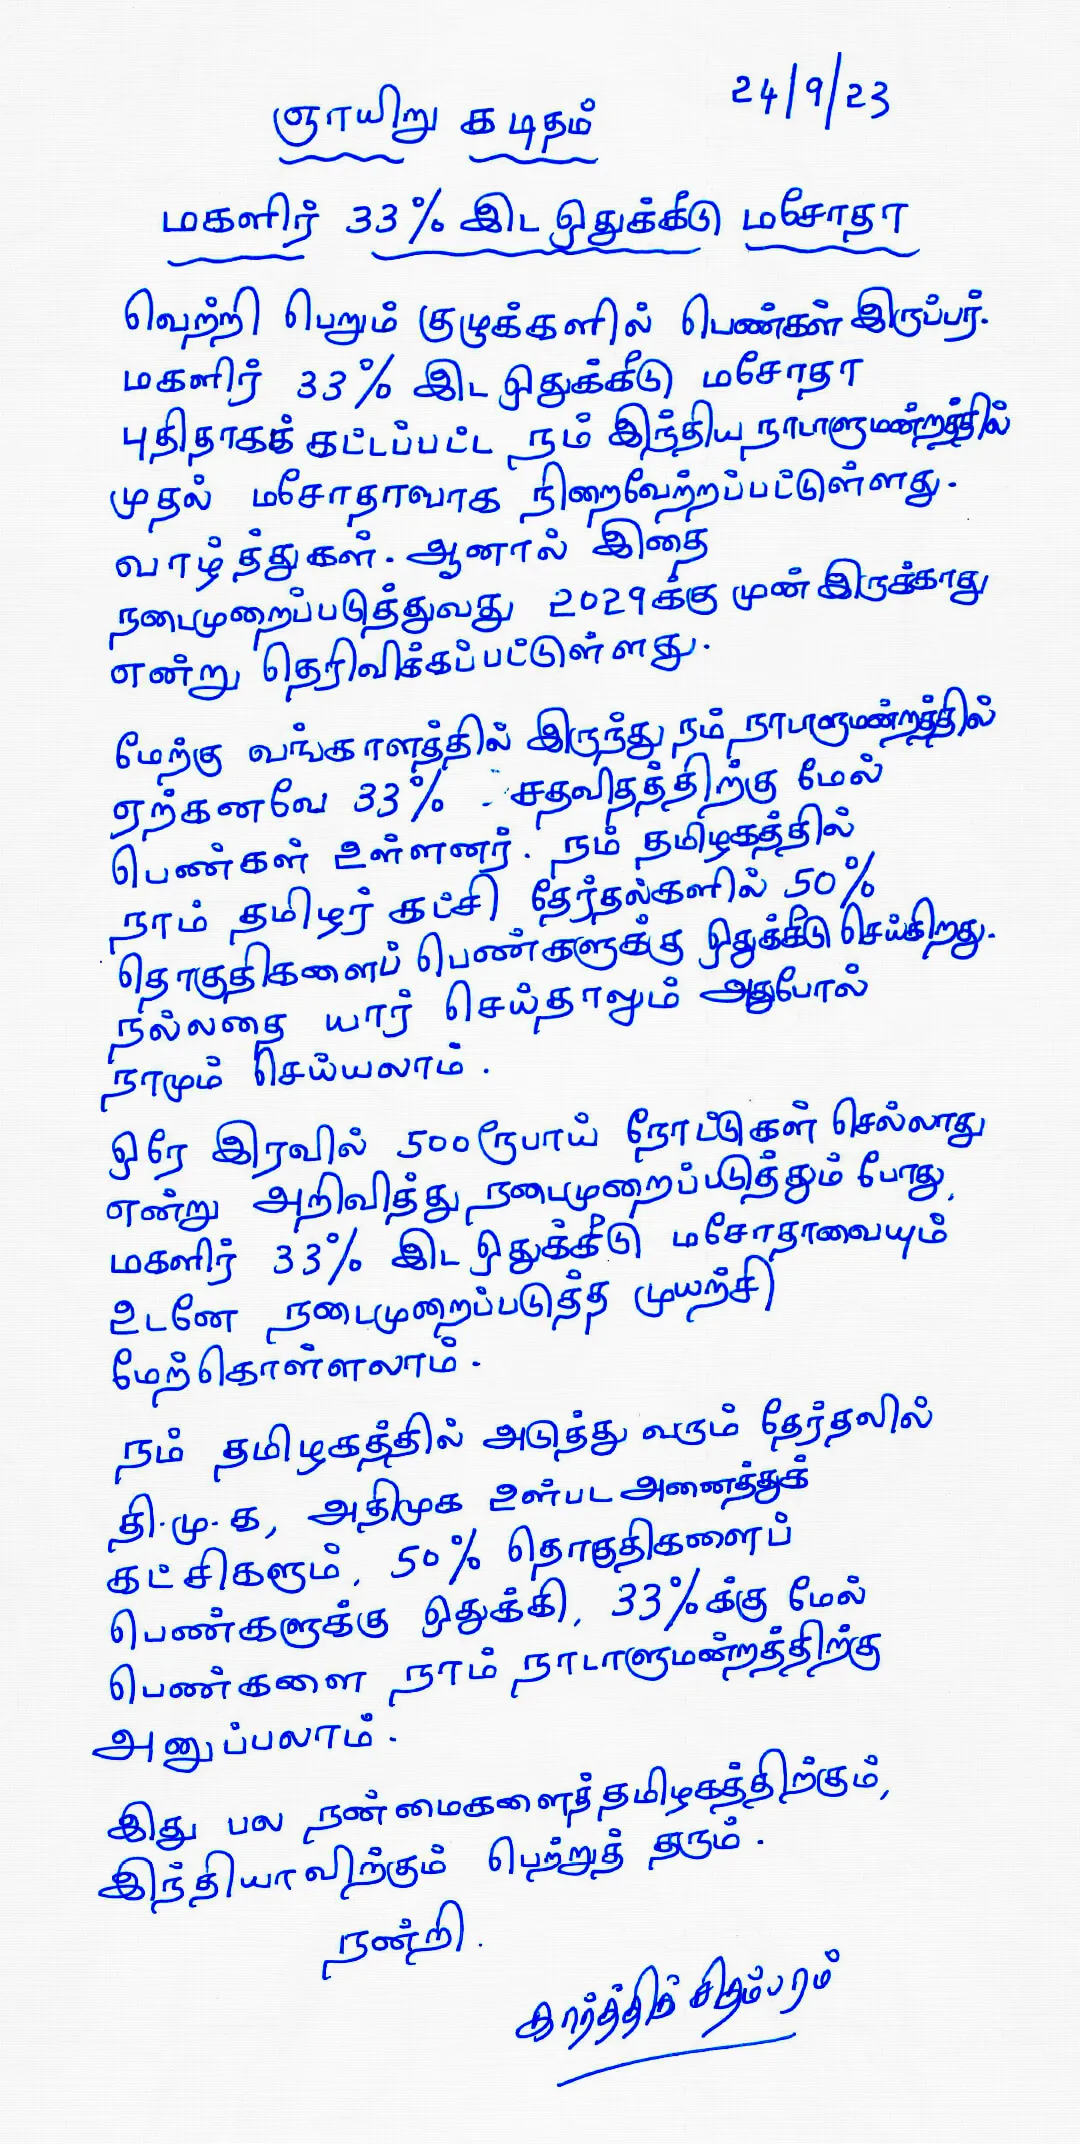 24/9/23
ஞாயிறு கடிதம்
மகளிர் 33% இட ஒதுக்கீடு மசோதா
வெற்றி பெறும் குழுக்களில் பெண்கள் இருப்பர்.
மகளிர் 33% இட ஒதுக்கீடு மசோதா
புதிதாகக் கட்டப்பட்ட நம் இந்திய நாடாளுமன்றத்தில்
முதல் மசோதாவாக நிறைவேற்றப்பட்டுள்ளது.
வாழ்த்துகள். ஆனால் இதை
நடைமுறைப்படுத்துவது 2029க்கு முன் இருக்காது
என்று தெரிவிக்கப்பட்டுள்ளது.
மேற்கு வங்காளத்தில் இருந்து நம் நாடாளுமன்றத்தில்
ஏற்கனவே 33% சதவிதத்திற்கு மேல்
பெண்கள் உள்ளனர். நம் தமிழகத்தில்
நாம் தமிழர் கட்சி தேர்தல்களில் 50%
தொகுதிகளைப் பெண்களுக்கு ஒதுக்கீடு செய்கிறது.
நல்லதை யார் செய்தாலும் அதுபோல்
நாமும் செய்யலாம்.
ஒரே இரவில் 500 ரூபாய் நோட்டுகள் செல்லாது
என்று அறிவித்து நடைமுறைப்படுத்தும் போது,
மகளிர் 33% இட ஒதுக்கீடு மசோதாவையும்
உடனே நடைமுறைப்படுத்த முயற்சி
மேற்கொள்ளலாம்.
நம் தமிழகத்தில் அடுத்து வரும் தேர்தலில்
தி.மு.க, அதிமுக உள்பட அனைத்துக்
கட்சிகளும், 50% தொகுதிகளைப்
பெண்களுக்கு ஒதுக்கி, 33%க்கு மேல்
பெண்களை நாம் நாடாளுமன்றத்திற்கு
அனுப்பலாம்.
இது பல நன்மைகளைத் தமிழகத்திற்கும்,
இந்தியாவிற்கும் பெற்றுத் தரும்.
நன்றி.
கார்த்திக் சிதம்பரம்